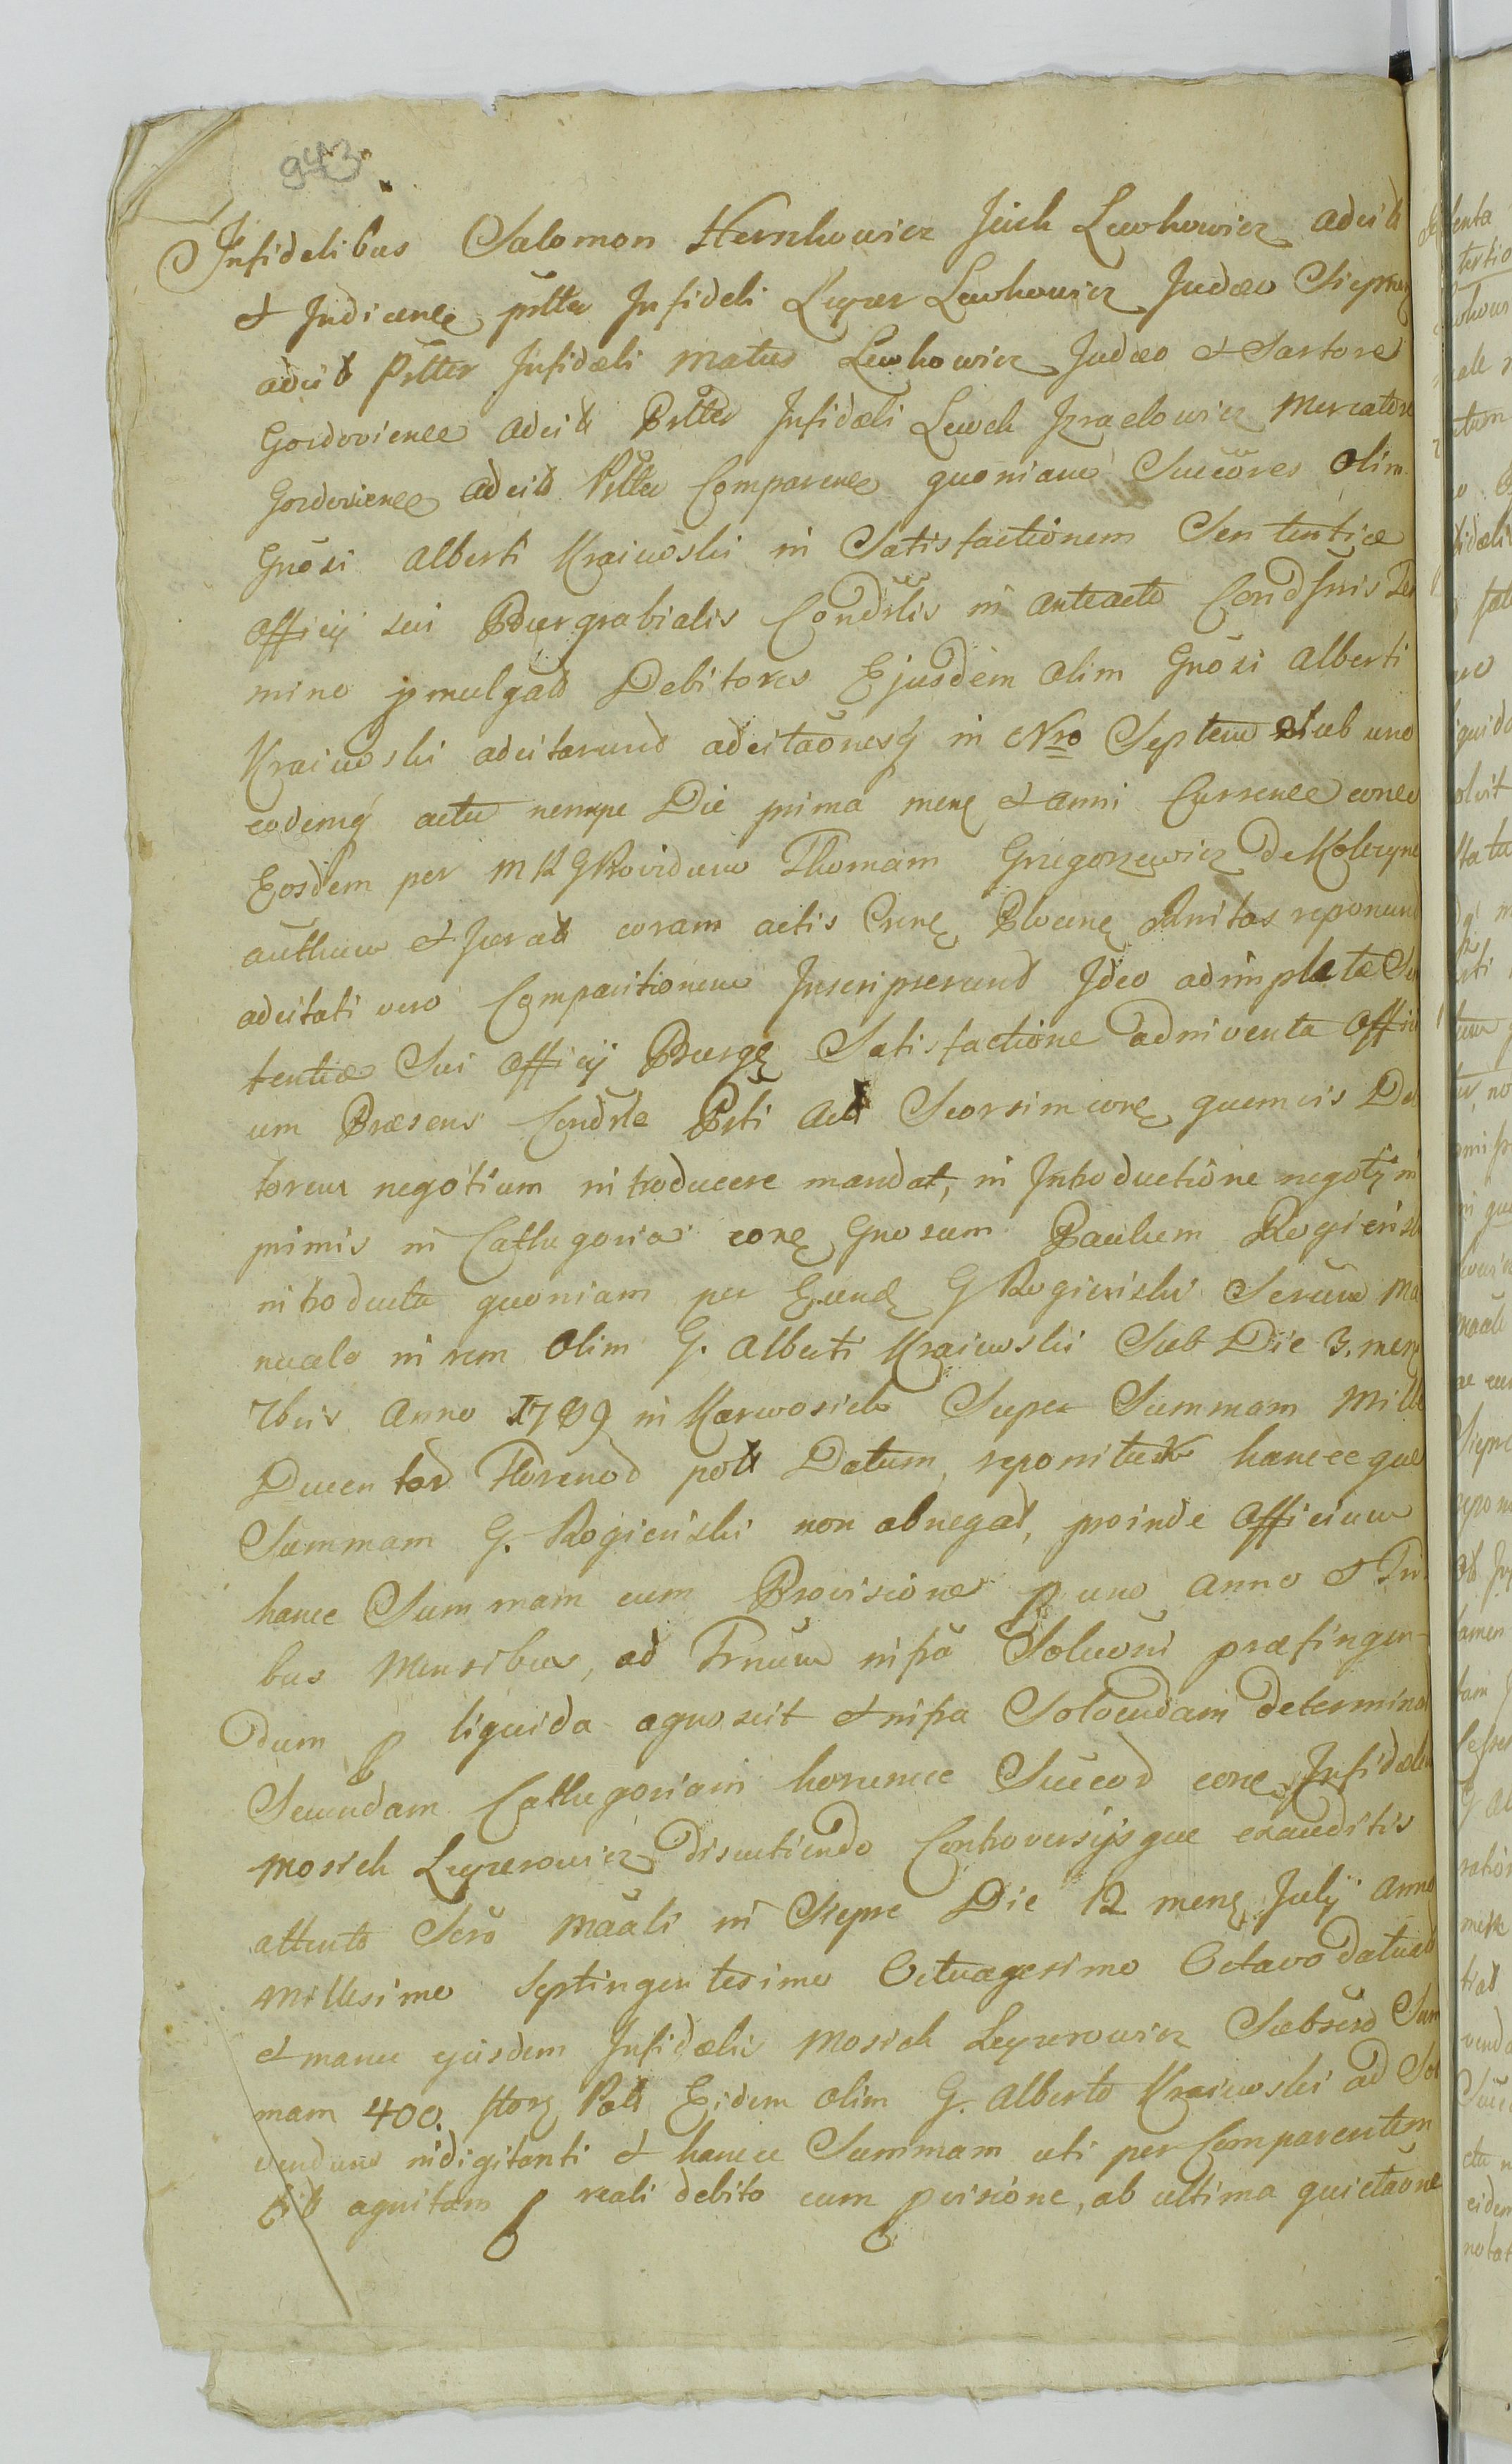 943.
Infidelibus Salomon Herszkowicz Jcek Lewkowicz adcit
et Judicene pslter Infideli Leyzer Lewkowicz Judæo Sieprc
adcit psltter Infidæli Matus Lewkowicz Judæo et Sartore
Gozdoviene adcit Psltter Infidæli Lewek Jzraelowicz Mercatore
Gozdoviene adcit Psltter Comparene quoniam Succores Olim
Gnosi Alberti Kraiewski in Satisfactionem Sententiæ
Officij sui Burgrabialis Condrlis in anteacto Condscnis Ter
mino pmulgat Debitores Ejusdem Olim Gnosi Alberti
Kraiewski adcitarund adcitaonesq in Nro Septem sub uno
eodemq actu nempe Die prima mens et anni Currene cone
Eosdem per M K G Providum Thomam Grzegorzewicz de Koleczyne
authum et Jurat coram actis Crne Plocene Rnitas reponunt
adcitati vero Comparitionem Inscripserund Jdeo adimpletæ Sen
tentiæ Sui Officij Burge Satisfactione adinventa Offici
um Præsens Condrle Prti Act Seorsim cone quemvis Debi
torem negotium introducere mandat, in Introductione negotj in
primis in Cathegoria cone Gnosum Paulum Rogienski
introducta quoniam per Eund G Rogienski Scrum Ma
nuale in rem Olim G. Alberti Kraiewski Sub Die 3. mens
7bris Anno 1789 in Karwosieki Super Summam Mille
Ducentor Florenor poll Datum, reponitur hancceque
Summam G. Rogienski non abnegat, proinde Officium
hancce Summam cum Provisione p uno anno et Tri
bus Mensibus, ad Trnum infra Soluoni præfingen-
dum p liquida agnoscit et infra Solvendam determinat
Secundam Cathegoriam horumce Succor cone Infidælem
Mosiek Leyzerowicz Discutiendo Controversijsque exauditis
attento Scro Maali in Sieprc Die 12 mens July Anno
Millesimo Septingentesimo Octuagesimo Octavo datuat
et manu ejusdem Infidælis Mosiek Leyzerowicz Subscro Sum
mam 400. flor Poll Eidem olim G. Alberto Kraiewski ad Sol
vendum indigitanti et hancce Summam uti per Comparentem
Cit agnitam p reali debito cum pvisione, ab ultima quietaone